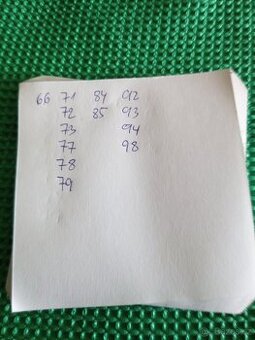 66 71 84 92
72 85 93
73 94
77 98
78
79